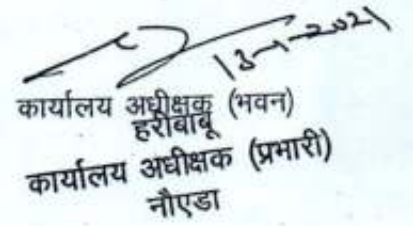 13-1-2021
कार्यालय अधीक्षक (भवन)
हरीबाबू
कार्यालय अधीक्षक (प्रभारी)
नौएडा